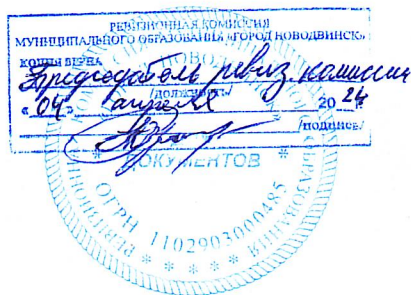 РЕВИЗИОННАЯ КОМИССИЯ
МУНИЦИПАЛЬНОГО ОБРАЗОВАНИЯ «ГОРОД НОВОДВИНСК»
КОПИЯ ВЕРНА
Председатель ревиз. комиссии
/ДОЛЖНОСТЬ/
«04» апреля 2024
/ПОДПИСЬ/
* ДОКУМЕНТОВ *
ОГРН 1102903000485